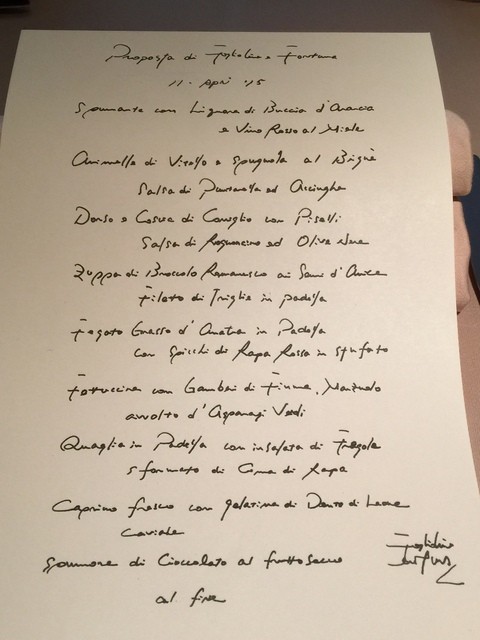 Proposta di Fortuna
11. Apri '15
Spumante con Liquore di Buccia d'Arancia
e Vino Rosso al Miele
Animella di Vitello e Spugnola al Bignè
Salsa di Puntarella ed Acciughe
Dorso e Coscia di Coniglio con Piselli
Salsa di Rognoncino ed Olive Nere
Zuppa di Broccolo Romanesco ai Semi d'Anice
Filetto di Triglia in padella
Fegato Grasso d'Anatra in Padella
con Spicchi di Rapa Rossa in stufato
Fettuccine con Gamberi di Fiume,
avvolto d'Asparagi Verdi
Quaglia in Padella con insalata di Fragole
Sformato di Cima di Rapa
Caprino fresco con gelatina di Dente di Leone
Caviale
Spumone di Cioccolato al frutto secco
al fine